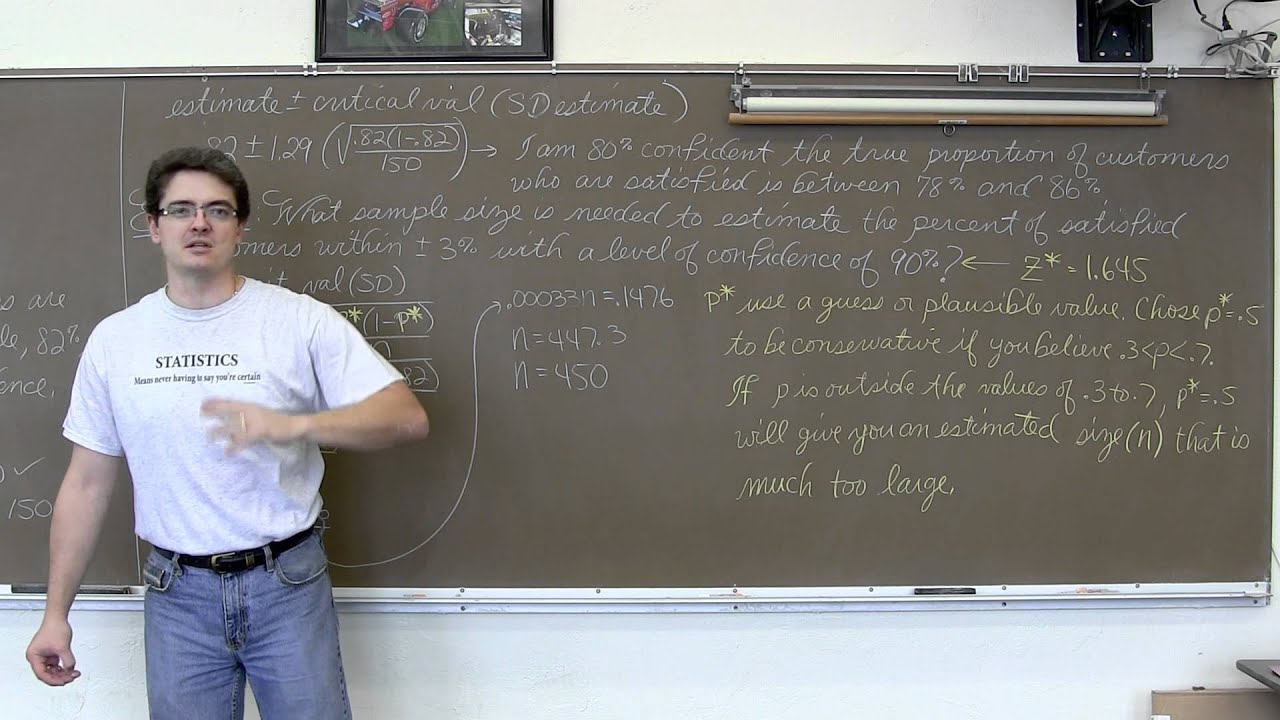 estimate ± critical val (SD estimate)
.82 ± 1.29 (√.82(1-.82)/150) → I am 80% confident the true proportion of customers
who are satisfied is between 78% and 86%
: What sample size is needed to estimate the percent of satisfied
omers within ± 3% with a level of confidence of 90%? ← Z* = 1.645
it val (SD)
*(1-P*)
n
82)
.00033n = .1476
n = 447.3
n = 450
P* use a guess or plausible value. Chose P* = .5
to be conservative if you believe .3<p<.7.
If p is outside the values of .3 to .7, P* = .5
will give you an estimated size (n) that is
much too large.
s are
le, 82%
ence,
✓
150
STATISTICS
Means never having to say you're certain